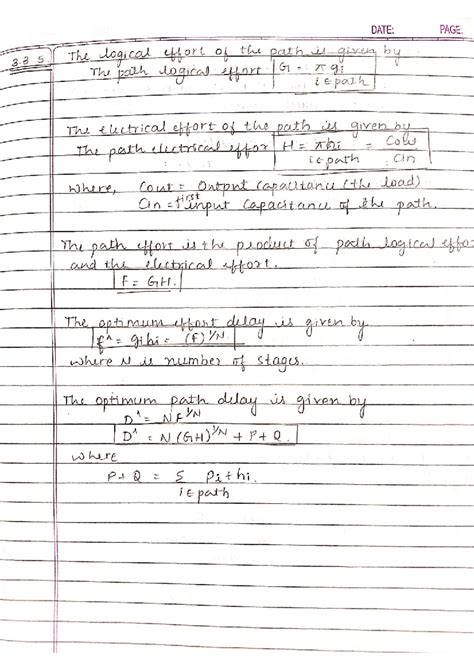 DATE: PAGE:
3.3.5 The logical effort of the path is given by
The path logical effort G = π gi
i ∈ path
The electrical effort of the path is given by
The path electrical effor H = π hi = Cout
i ∈ path Cin
where, Cout = Output Capacitance (the load)
Cin = first input Capacitance of the path.
The path effort is the product of path logical effo
and the electrical effort.
F = GH.
The optimum effort delay is given by
f^ = gihi = (F)^1/N
where N is number of stages.
The optimum path delay is given by
D^ = NF^1/N
D^ = N(GH)^1/N + P + Q.
where
P + Q = Σ Pi + hi.
i ∈ path